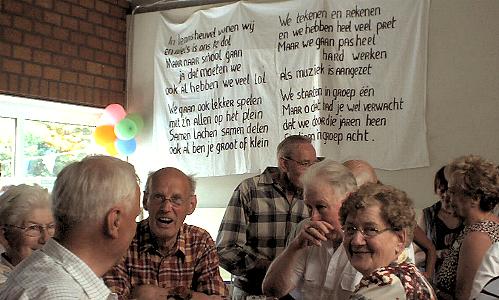 In Lennisheuvel wonen wij
en niets is ons te dol
Maar naar school gaan
ja dat moeten we
ook al hebben we veel lol
We gaan ook lekker spelen
met z'n allen op het plein
Samen lachen samen delen
ook al ben je groot of klein
We tekenen en rekenen
en we hebben heel veel pret
Maar we gaan pas heel
hard werken
als muziek is aangezet
We starten in groep één
Maar o dat had je wel verwacht
dat we door die jaren heen
in groep acht.